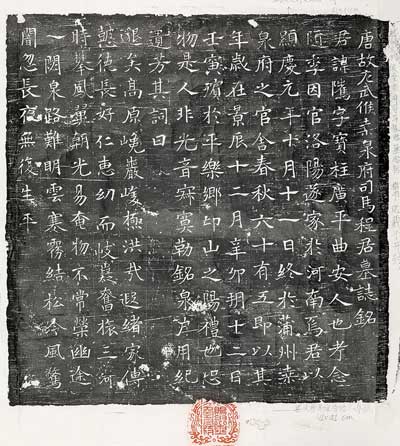 唐故左武候桒泉府司馬程君墓誌銘
君諱字寶柱廣平曲安人也考念
隨季因官洛陽遂家於河南焉君以
顯慶元年十月十一日終於蒲州桒
泉府之官舍春秋六十有五即以其
年歲在景辰十二月辛卯朔十二日
壬寅殯於平樂鄉邙山之陽禮也恐
物是人非光音寂寞勒銘泉戶用紀
遺芳其詞曰
邈矣高原巍巖峻極洪哉遐緒家傳
懿德長好仁惠幼而岐嶷奮振三河
時舉風朝光易奄物不常榮幽途
一閟泉路難明雲寒霧結松冷風驚
闇忽長夜無復生平